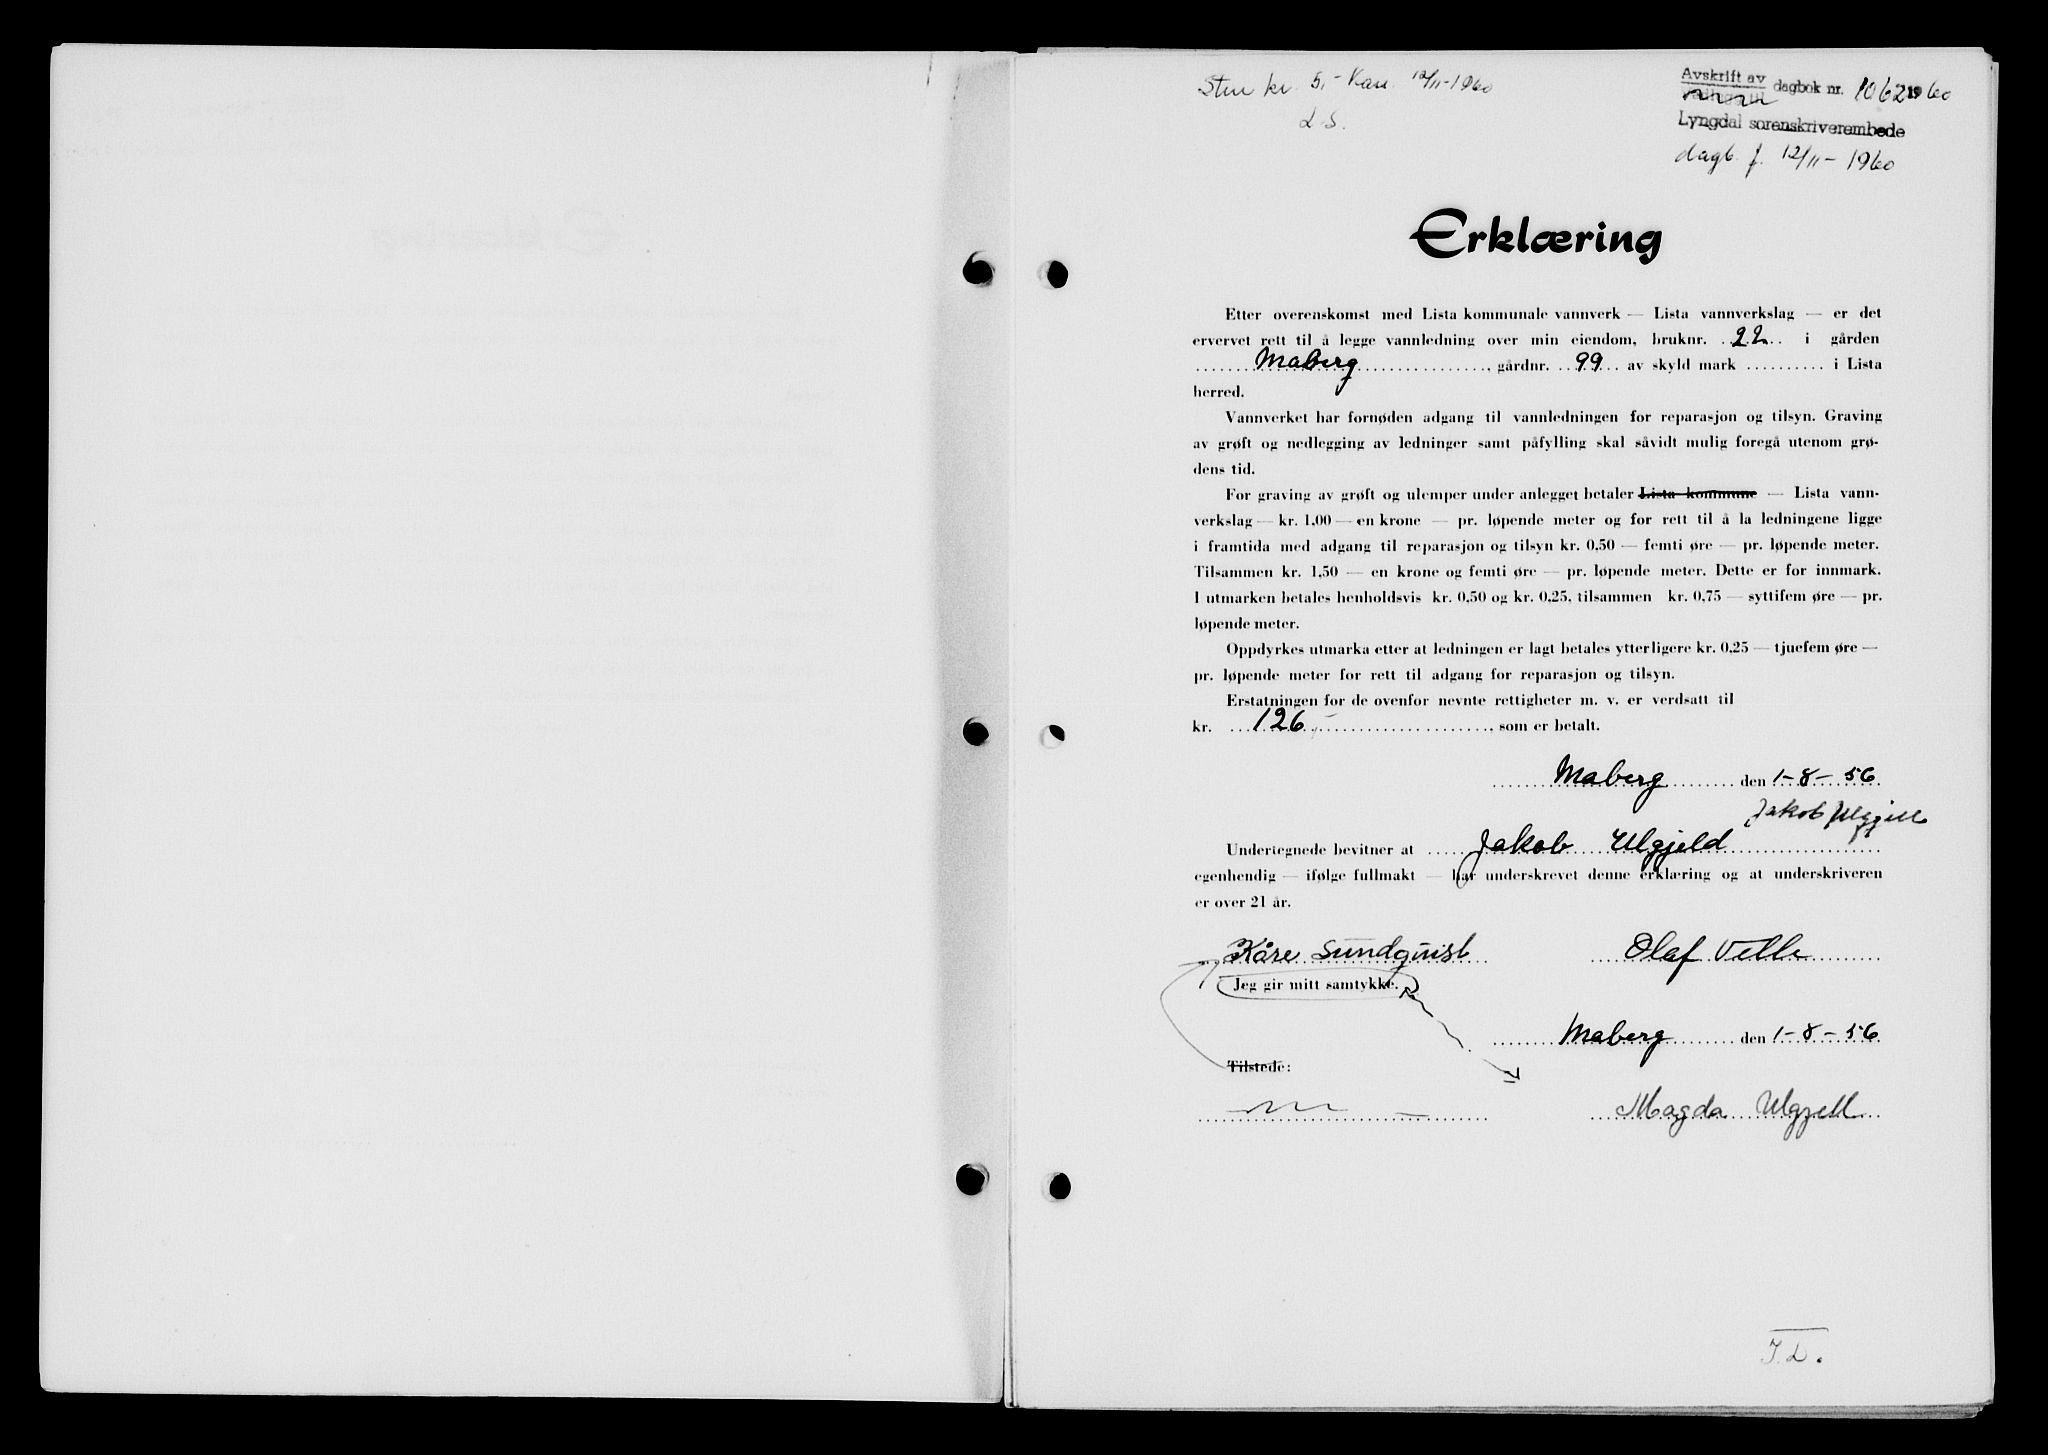 Stm kr. 5,- Kass. 12/11-1960
L.S.
Avskrift av dagbok nr. 1062 1960
Lyngdal sorenskriverembede
dagb. f. 12/11 - 1960
Erklæring
Etter overenskomst med Lista kommunale vannverk — Lista vannverkslag — er det
ervervet rett til å legge vannledning over min eiendom, bruknr. 22 i gården
Maberg, gårdnr. 99 av skyld mark .......... i Lista
herred.
Vannverket har fornøden adgang til vannledningen for reparasjon og tilsyn. Graving
av grøft og nedlegging av ledninger samt påfylling skal såvidt mulig foregå utenom grø-
dens tid.
For graving av grøft og ulemper under anlegget betaler Lista kommune — Lista vann-
verkslag — kr. 1,00 — en krone — pr. løpende meter og for rett til å la ledningene ligge
i framtida med adgang til reparasjon og tilsyn kr. 0,50 — femti øre — pr. løpende meter.
Tilsammen kr. 1,50 — en krone og femti øre — pr. løpende meter. Dette er for innmark.
I utmarken betales henholdsvis kr. 0,50 og kr. 0,25, tilsammen kr. 0,75 — syttifem øre — pr.
løpende meter.
Oppdyrkes utmarka etter at ledningen er lagt betales ytterligere kr. 0,25 — tjuefem øre —
pr. løpende meter for rett til adgang for reparasjon og tilsyn.
Erstatningen for de ovenfor nevnte rettigheter m. v. er verdsatt til
kr. 126,-, som er betalt.
Maberg den 1-8-56
Jakob Ulgjell
Undertegnede bevitner at Jakob Ulgjeld
egenhendig — ifølge fullmakt — har underskrevet denne erklæring og at underskriveren
er over 21 år.
Kåre Sundquist Olaf Velle
Jeg gir mitt samtykke.
Maberg den 1-8-56
Tilstede:
Magda Ulgjell
J.L.